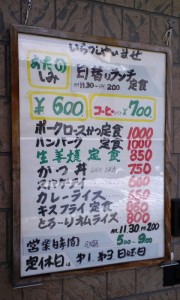 いらっしゃいませ
お昼の
しみ
日替りランチ
定食
AM11:30~PM2:00
¥600
コーヒーつき¥700
ポークロースかつ定食 1000
ハンバーグ 定食 1000
生姜焼定食 850
かつ丼 750
600
カレーライス 650
キスフライ定食 850
とろ~りオムライス 800
AM11:30
営業時間 5:00~9:00
定休日は、第1、第3日曜日